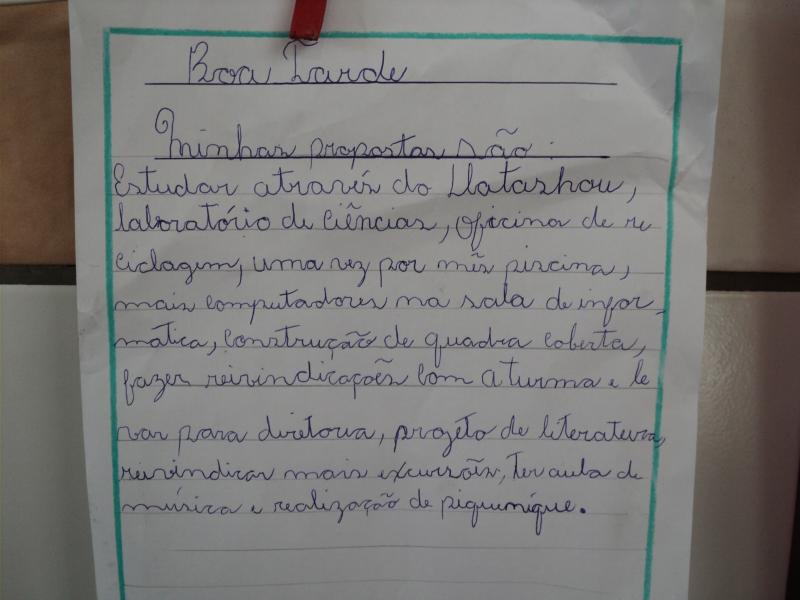 Boa Tarde
Minhas propostas são:
Estudar através do Datashou,
laboratório de Ciências, oficina de re
ciclagem, uma vez por mês piscina,
mais computadores na sala de infor-
mática, construção de quadra coberta,
fazer reivindicações com a turma e le
var para diretoria, projeto de literatura,
reivindicar mais excursões, ter aula de
música e realização de piquenique.